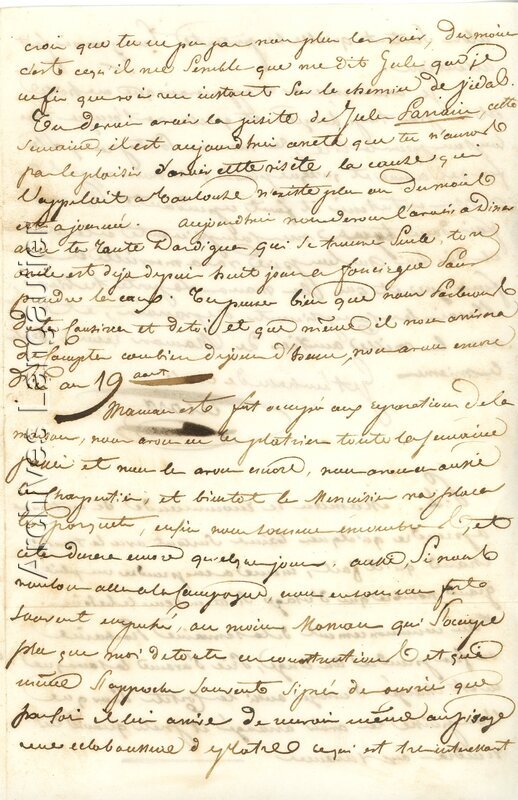 crois que tu ne pas pas non plus les voir, du moins
c'est ce qu'il me semble que me dit Jule que je
ne fis que voir un instant sur le chemin de
Tu devais avoir la visite de Jules cette
semaine, il est aujourd'hui que tu n'auras
pas le plaisir d'avoir cette visite, la cause qui
l'appeloit a Toulouse n'existe plus ou du moins
est ajournée. aujourd'hui nous devons l'avoir a diner
avec la Tante Dardigna, qui se trouve seule, ton
oncle est deja depuis huit jours a pour
prendre les eaux. Tu penses bien que nous parlerons
des cousines et de toi et que même il nous arrivera
de compter combien de jours d'heures, nous avons encore
d'ici au 19 aout
Maman est fort occupé aux reparations de la
maison, nous avons eu les platriers toute la semaine
et nous les avons encore, nous avons aussi
le Charpentier, et bientot le Menuisier va placer
les parquets, enfin nous sommes encombrés, et
cela durera encore quelques jours. aussi, si nous
voulons aller a la Campagne, nous en sommes fort
souvent empeché, au moins Maman qui s'occupe
plus que moi de toutes ces constructions et qui
même s'approche souvent si près des ouvriers que
parfois il lui arrive de recevoir même au visage
une eclaboussure de platre ce qui est tres interessant
Archives Lengaulier